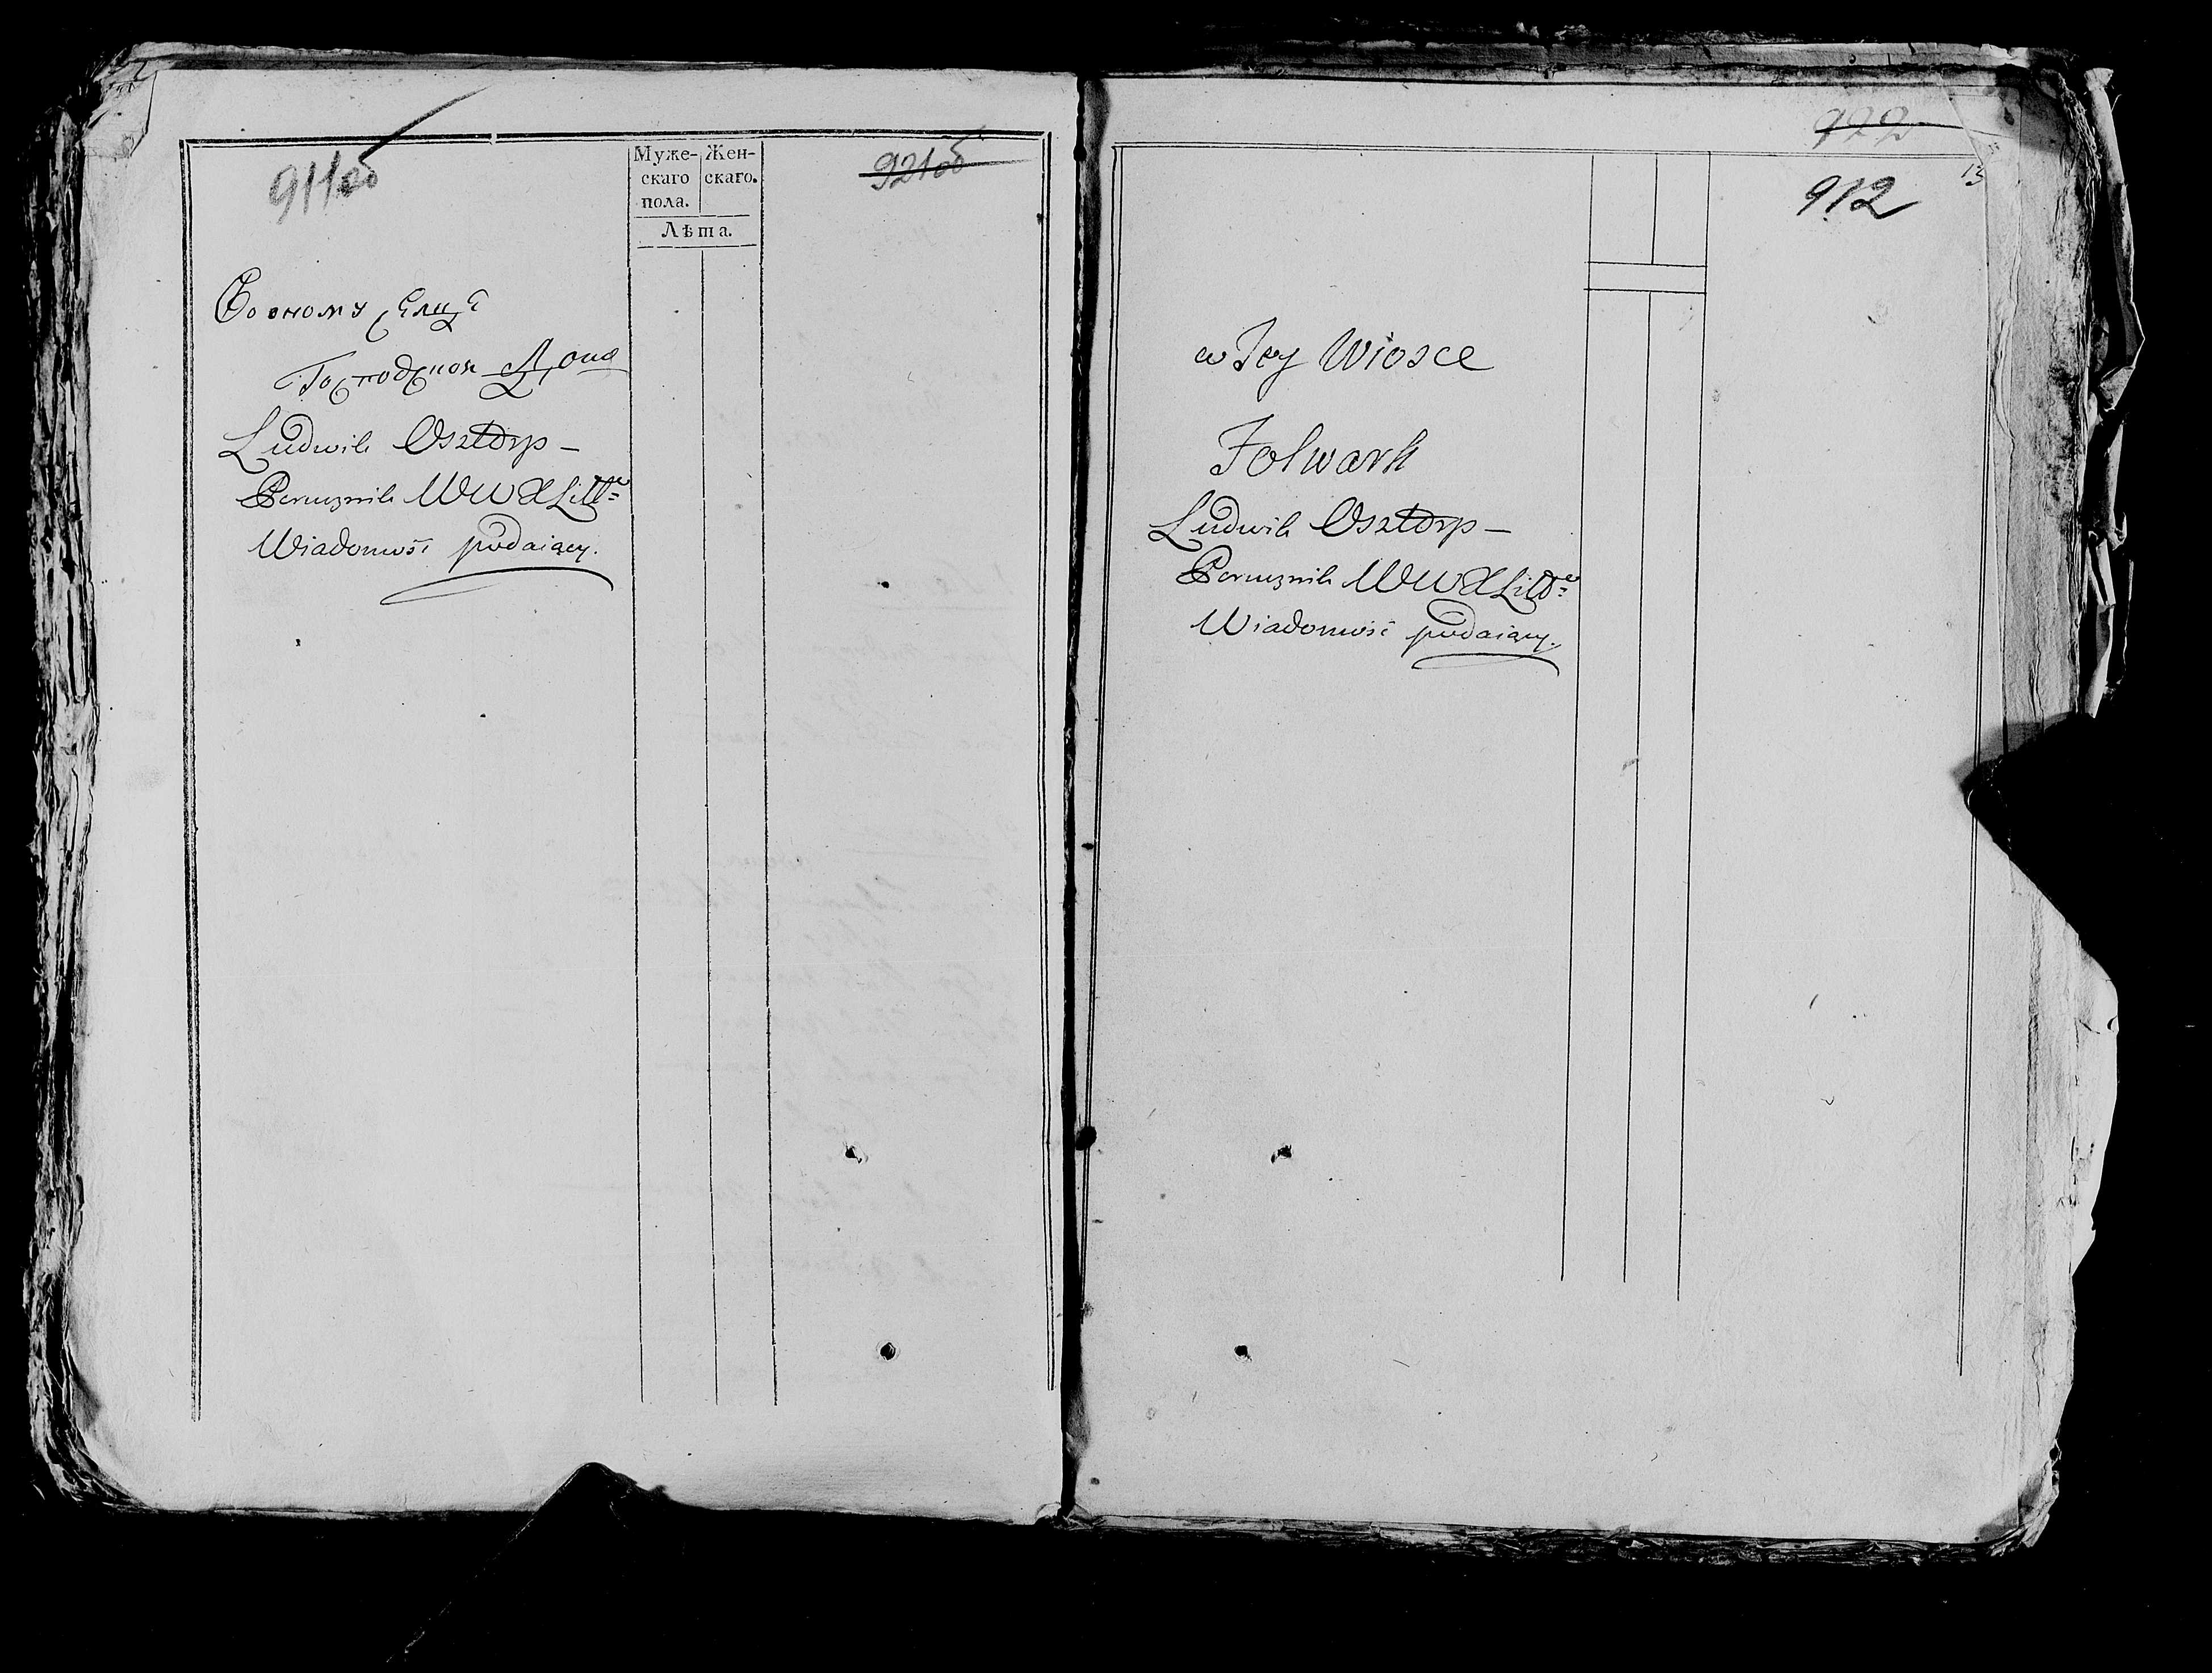 911об
Муже-
скаго
пола.
Жен-
скаго.
Лѣта.
921об
Господской Домъ
Ludwik Osztorp –
Porucznik WWXLitto=
Wiadomość podaiący.
922
13
912
w Tey Wiosce
Folwark
Ludwik Osztorp –
Porucznik WWXLitto=
Wiadomość podaiący.